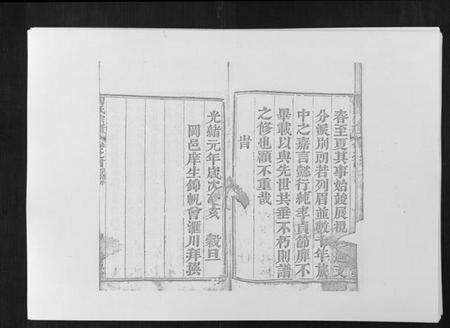 春至夏其事始竣展視
分派別朗若列眉並數千年族
中之嘉言懿行純孝貞節靡不
畢載以與先世共垂不朽則譜
之修也顧不重哉
旹
光緒元年歲次乙亥 穀旦
岡邑庠生錦帆曾滙川拜撰